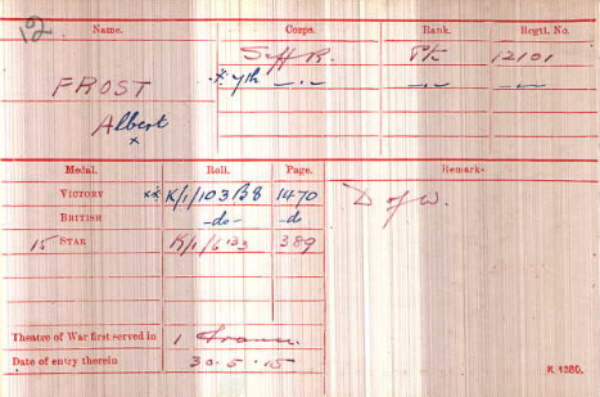 12
Name. Corps. Rank. Regtl. No.
Suff R. Pte 12101
FROST x 7th —"— —"— —"—
Albert
x
Medal. Roll. Page. Remarks
VICTORY xx K/1/103B8 1470 D of W.
BRITISH -do- -do
15 STAR K/1/6 389
Theatre of War first served in 1 France.
Date of entry therein 30.5.15
K 1380.